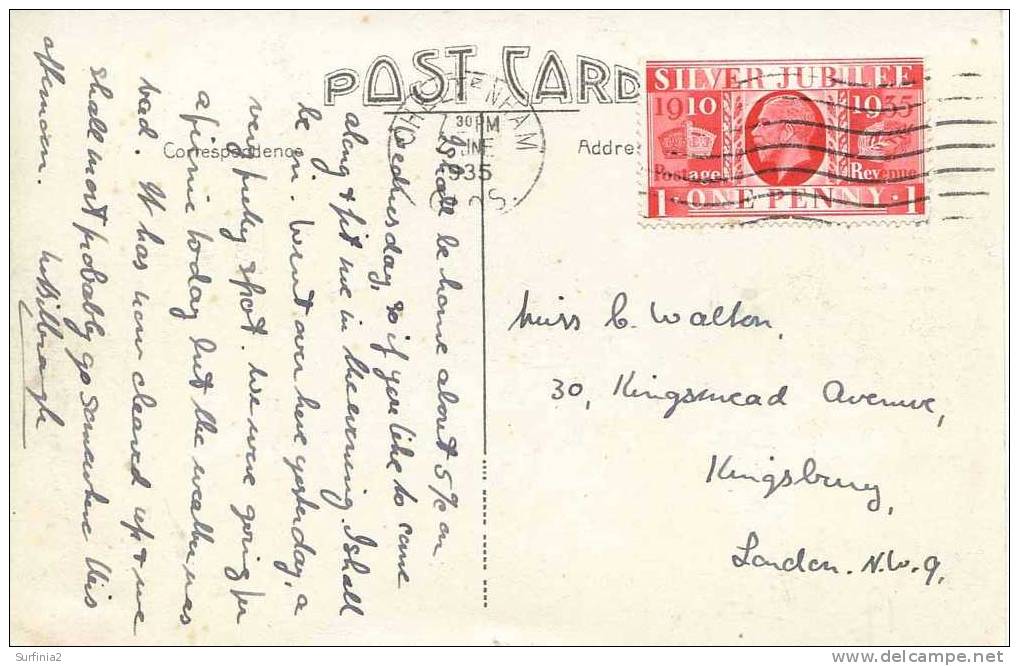 POST CARD
Correspondence
Addre
SILVER JUBILEE
1910 1935
Postage Revenue
1 ONE PENNY 1
30 PM
1935
I shall be home about 5% on
Wednesday, so if you like to come
along & fit me in the evening. I shall
be in. Went over here yesterday, a
very pretty spot. We were going for
a picnic today but the weather was
bad. It has now cleared up & we
shall most probably go somewhere this
afternoon.
Miss C. Walton,
30, Kingsmead Avenue,
Kingsbury,
London. N.W.9.
Surfinia2
www.delcampe.net